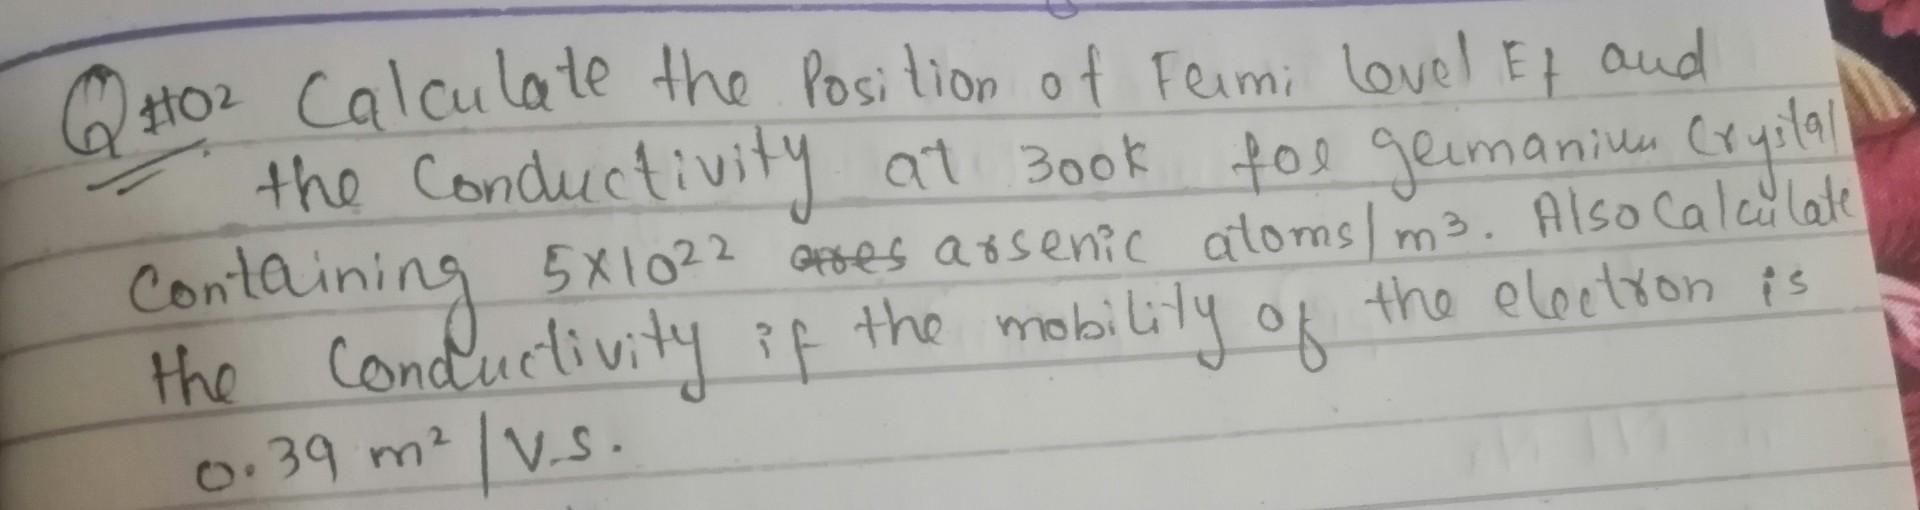 Q#02 Calculate the Position of Fermi level Ef and
the Conductivity at 300k for germanium Crystal
Containing 5x10²² arsenic atoms/m³. Also Calculate
the Conductivity if the mobility of the electron is
0.39 m²/V.S.